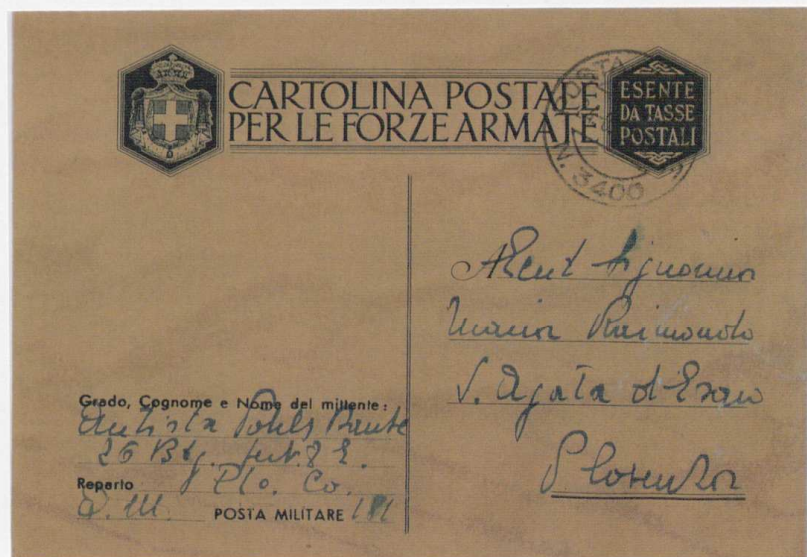 CARTOLINA POSTALE
PER LE FORZE ARMATE
ESENTE
DA TASSE
POSTALI
POSTA
N. 3400
Signorina
Maria Raimondo
S. Agata d'Esaro
Cosenza
Grado, Cognome e Nome del mittente:
Autista
26 Btg.
Reparto Plo. Co.
P. M. POSTA MILITARE 181